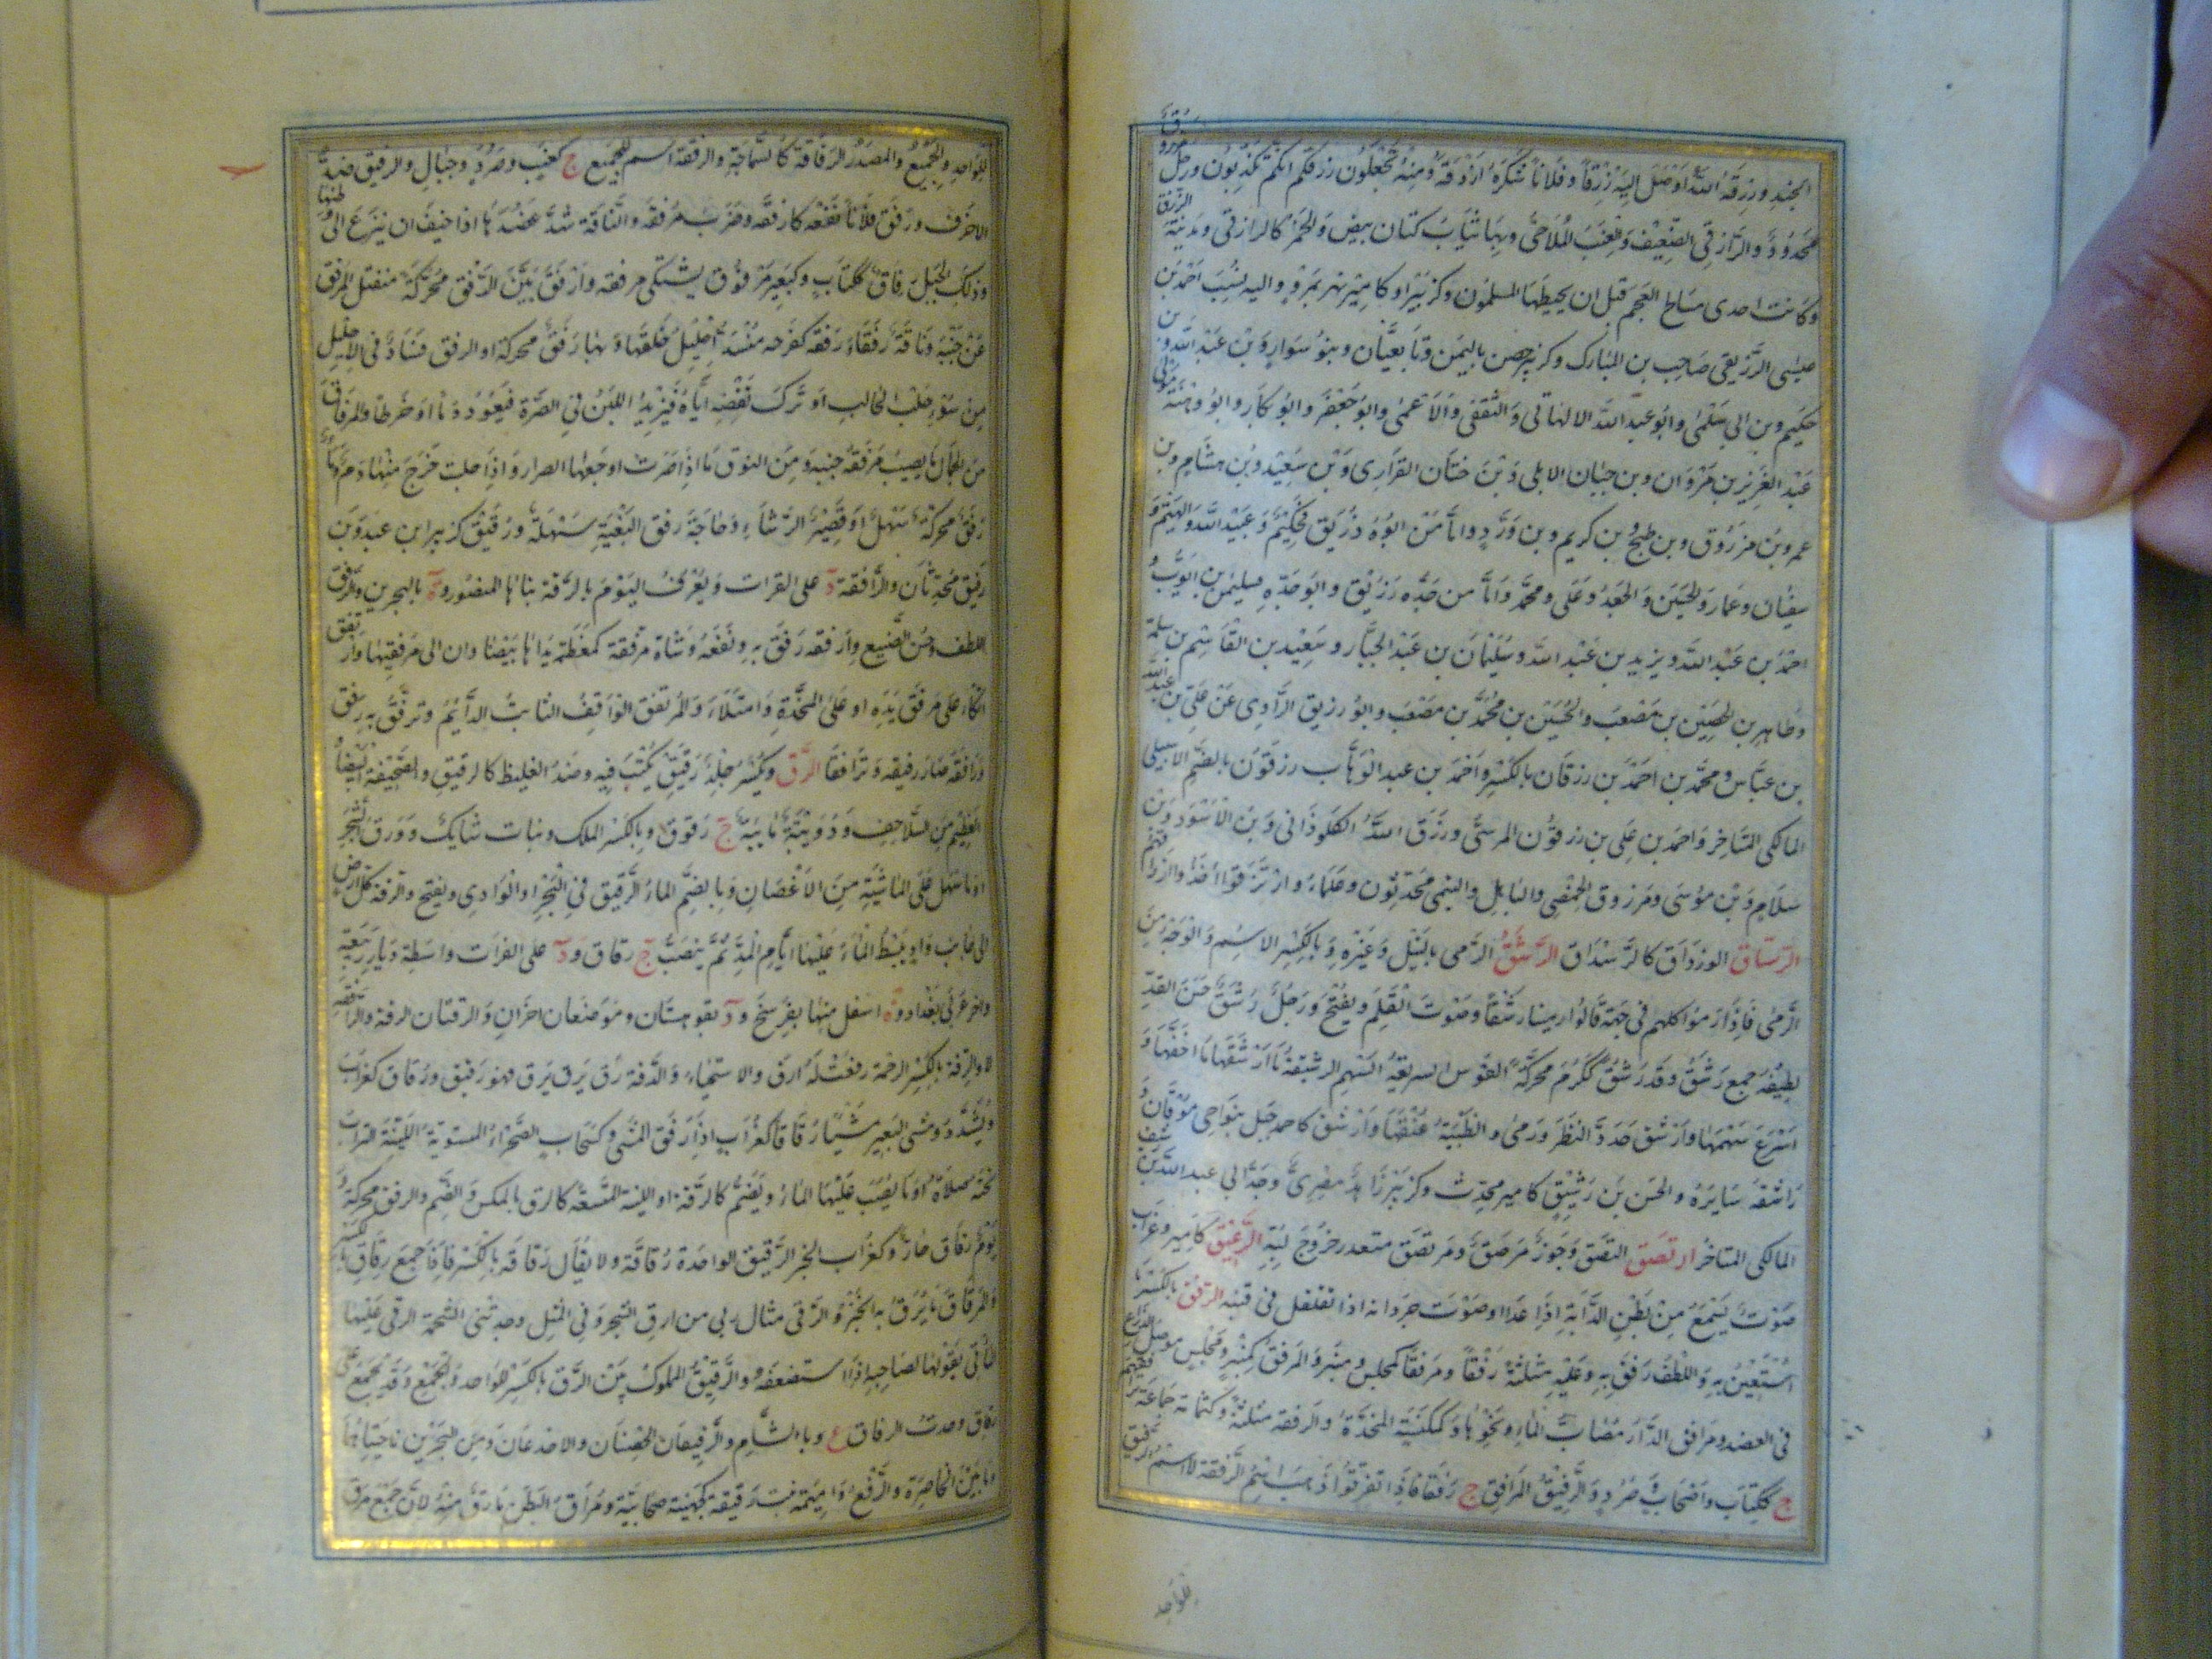 الجند ورزقه الله اوصل اليه رزقا وفلانا شكره ازدقة ومنه تجعلون رزقكم انكم تكذبون ورجل مرزوق
محدود والرازقي الضعيف والعنب الملاحي وبهاء ثياب كتان بيض والخمر كالرازقي ومدينة الرزق
وكانت احدى مسالح العجم قبل ان يختطها المسلمون وكزبير او كامير نهر بمرو واليه نسب احمد بن
عيسى الرزيقي صاحب بن المبارك وكزبير حصن باليمن وتابعيان وبنو سوار وبن عبد الله وبن
حكيم وبن ابي سلمى وابو عبد الله الالهاني والثقفي والاعمى وابو جعفر وابو بكار وابو وهنة مولى
عبد العزيز بن مروان وبن حيان الايلي وبن حيان الفزاري وبن سعيد وبن هشام وبن
عمر وبن مرزوق وبن نجيح وبن كريم وبن ورد واما من ابوه رزيق فحكيم وعبيد الله والهيثم و
سفيان وعمار والحسين والجعد وعلي ومحمد واما من جده رزيق وابو جده فسليمن بن ايوب و
احمد بن عبد الله ويزيد بن عبد الله وسليمان بن عبد الجبار وسعيد بن القاسم بن سلمة
وطاهر بن الحسين بن مصعب والحسين بن محمد بن مصعب وابو رزيق الراوي عن علي بن عبد الله
بن عباس ومحمد بن احمد بن رزقان بالكسر واحمد بن عبد الوهاب رزقون بالضم الاشبيلي
المالكي المتاخر واحمد بن علي بن رزقون المرسي ورزق الله الكلوذاني وبن الاسود وبن
سلام وبن موسى ومرزوق الحمصي والباهلي والتيمي محدثون وعلماء وارتزقوا اخذوا ارزاقهم
الرستاق الوزداق كالرسداق الرشق الرمي بالنبل وغيره وبالكسر الاسم والوجه من
الرمي فاذا رموا كلهم في جهة قالوا رمينا رشقا وصوت القلم ويفتح ورجل رشق حسن القد
لطيفه جمع رشق وقد رشق ككرم محركة القوس السريعة السهم الرشيقة ما ارشقها ما اخفها و
اسرع سهمها وارشق حدد النظر ورمى والظبية عنقها وارشق كاحمد جبل بنواحي موقان و
راشقه سايره والحسن بن رشيق كامير محدث وكزبير زاهد مصري وجد ابي عبد الله بن رشيق
المالكي المتاخر ارتصق التصق وجوز مرصق ومرتصق متعذر خروج لبه الرعيق كامير وغراب
صوت يسمع من بطن الدابة اذا عدا او صوت جردانه اذا تقلقل في قنبه الرفق بالكسر ما
استعين به واللطف رفق به وعليه مثلثة رفقا ومرفقا كمجلس ومنبر والمرفق كمنبر ومجلس موصل الذراع
في العضد ومرافق الدار مصاب الماء ونحوها وكمكنسة المخدة والرفقة مثلثة وكثمامة جماعة ترافقهم
ج ككتاب واصحاب وصرد والرفيق المرافق ج رفقا فاذا تفرقوا ذهب اسم الرفقة لا اسم الرفيق
للواحد
للواحد والجميع والمصدر الرفاقة كالسماحة والرفقة اسم للجميع ج كعنب وصرد وجبال والرفيق ضد
الاخرق ورفق فلانا نفعه كارفقه وضرب مرفقه والناقة شد عضدها اذا خيف ان ينزع الى وطنها
وذلك الحبل رفاق ككتاب وكبعير مرفوق يشتكي مرفقه وارفق بين الرفق محركة منفتل المرفق
عن جنبه وناقة رفقاء ورفقه كفرحه منسد احليل خلفها وبها رفق محركة او الرفق فساد في الاحليل
من سوء حلب الحالب او ترك نفضه اياه فيزيد اللبن في الضرة فيعود دما او خرطا والمرفاق
من الجمال ما يصيب مرفقه جنبه ومن النوق ما اذا صرت اوجعها الصرار واذا حلبت خرج منها دم وماء
رفق محركة سهل او قصير الرشاء وحاجة رفق البغية سهلة ورفيق كزبير ابن عبد وبن
رفيق محدثان والرافقة د على الفرات ويعرف اليوم بالرقة بناها المنصور وة بالبحرين والرفق
اللطف وحسن الصنيع وارفقه رفق به ونفعه وشاة مرفقة كمعظمة يداها بيضاوان الى مرفقيها وارتفق
اتكأ على مرفق يده او على المخدة وامتلاء والمرتفق الواقف الثابت الدائم وترفق به رفق
ورافقه صار رفيقه وترافقا الرق ويكسر جلد رقيق يكتب فيه وضد الغليظ كالرقيق والصحيفة البيضاء و
العظيم من السلاحف ودويبة مائية ج رقوق وبالكسر الملك ونبات شايك وورق الشجر
او ما سهل على الماشية من الاغصان وبالضم الماء الرقيق في البحر او الوادي ويفتح والرقة كل ارض
الى جانب واد ينبسط الماء عليها ايام المد ثم ينضب ج رقاق ود على الفرات واسطة ديار ربيعة
واخر غربي بغداد وة اسفل منها بفرسخ ود بقوهستان وموضعان اخران والرقتان الرقة والرافقة
والرقة بالكسر الرحمة رققت له ارق والاستحياء والدقة رق يرق فهو رقيق ورقاق كغراب
ويشدد ومشى البعير مشيا رقاقا كغراب اذا رقق المشي وكسحاب الصحراء المستوية اللينة التراب
تحته صلابة او ما نضب عليها الماء ويضم كالرقة او اللينة المتسعة كالرق بالكسر والضم والرقق محركة و
يوم رقاق حار وكغراب الخبز الرقيق الواحدة رقاقة ولا يقال رقاقة بالكسر فاذا جمع رقاق بالكسر
والمرقاق ما يرق به الخبز والرقى مثال ربى من ارق الشحم وفي المثل وجدتني الشحمة الرقى عليها
المأتى يقولها لصاحبه اذا استضعفه والرقيق المملوك بين الرق بالكسر للواحد والجميع وقد يجمع على
رقاق وحدث الرقاق ع وبا الشام والرقيقان الخصيتان والاخدعان ومن المنخرين ناحيتاهما
وما بين الخاصرة والرفغ واميمة بنت رقيقة كجهينة صحابية ومراق البطن ما رق منه ولان جمع مرق